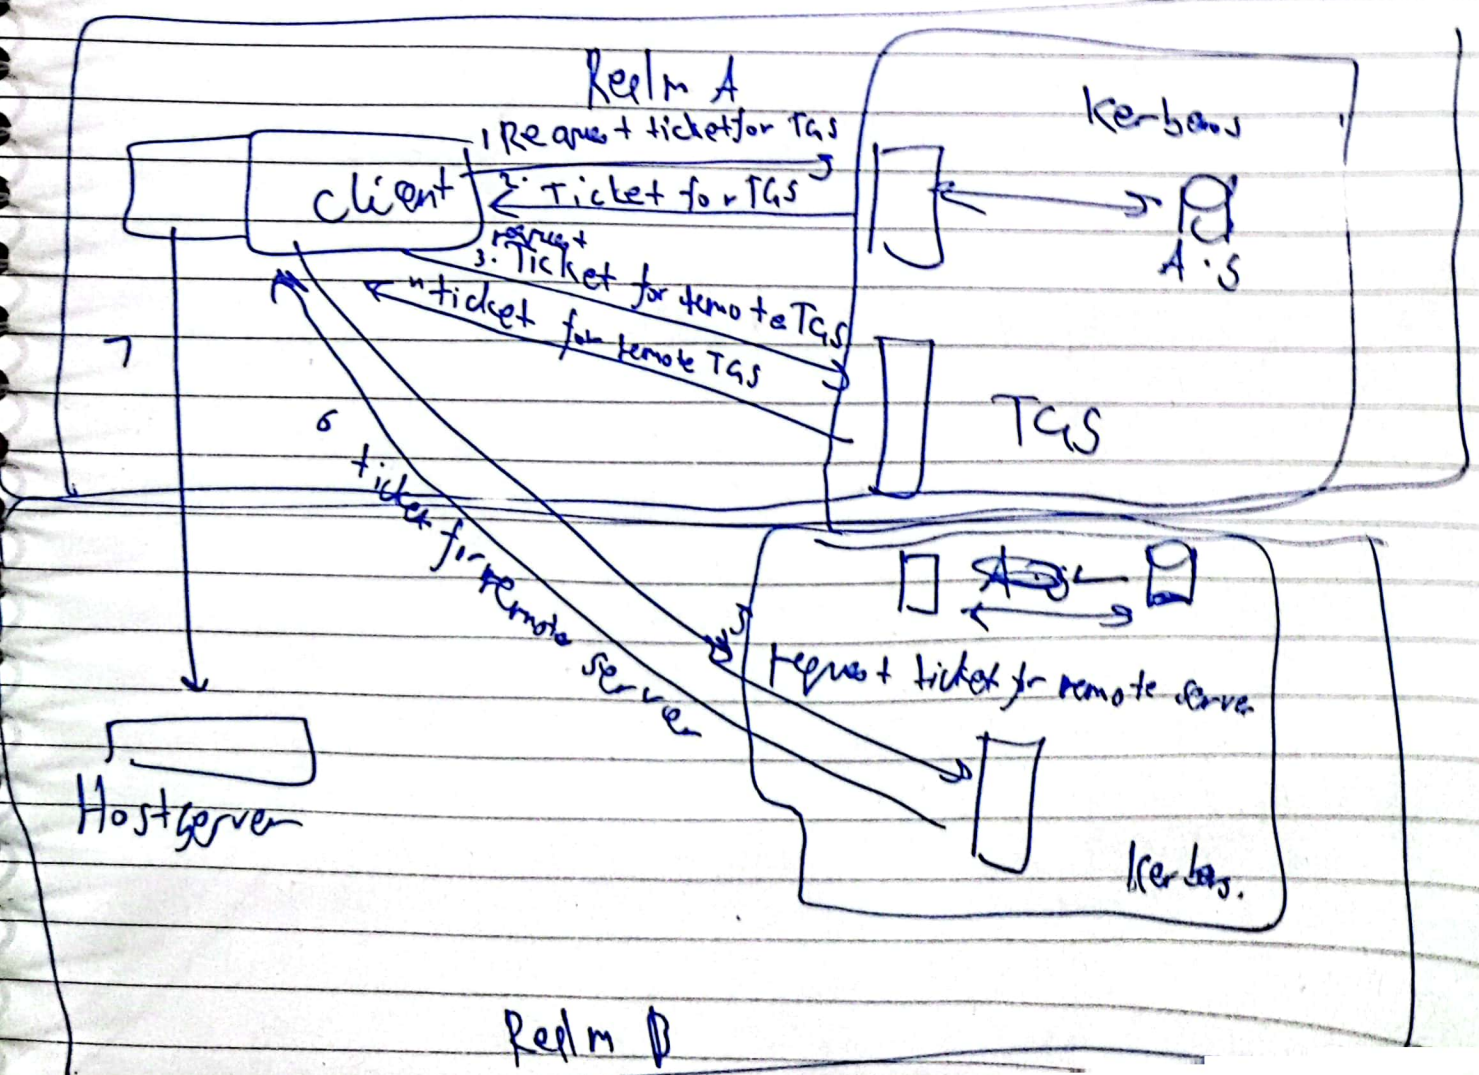 Realm A
Kerberos
1 Request ticket for TGS
client
2. Ticket for TGS
A.S
request
3. Ticket for remote TGS
" ticket for remote TGS
7
TGS
6
ticket for remote server
5
request ticket for remote server
Hostserver
Realm B